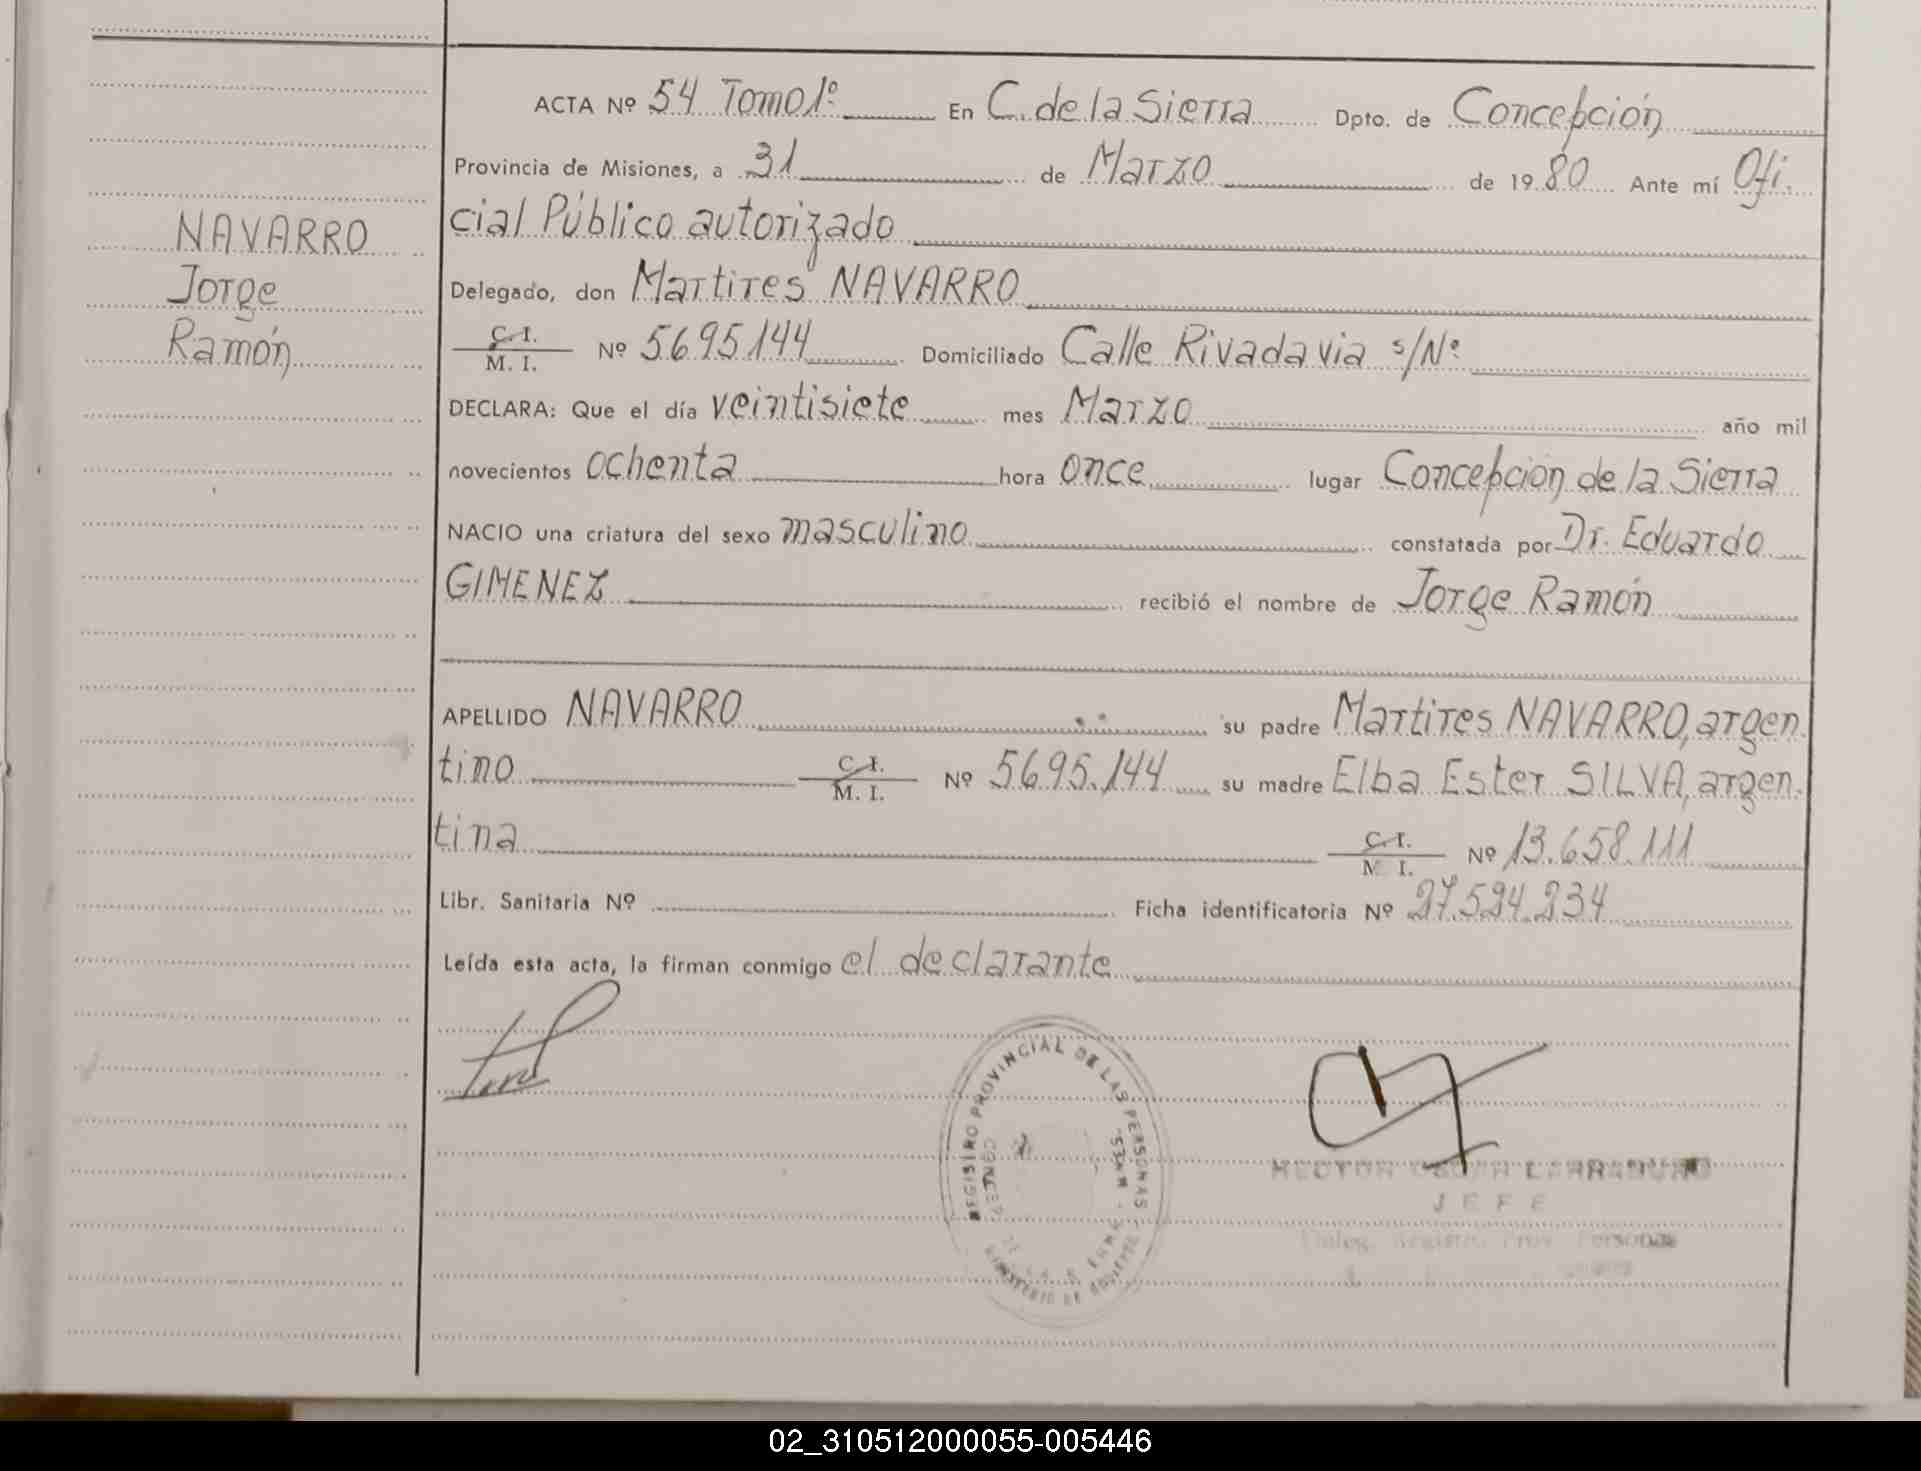 ACTA Nº 54 Tomo 1º En C. de la Sierra Dpto. de Concepción
Provincia de Misiones, a 31 de Marzo de 1980 Ante mí Ofi.
cial Público autorizado
Delegado, don Martires NAVARRO
C. I.
M. I. Nº 5695.144 Domiciliado Calle Rivadavia s/Nº
DECLARA: Que el día veintisiete mes Marzo año mil
novecientos ochenta hora once lugar Concepción de la Sierra
NACIO una criatura del sexo masculino constatada por Dr. Eduardo
GIMENEZ recibió el nombre de Jorge Ramón
APELLIDO NAVARRO su padre Martires NAVARRO, argen.
tino C. I.
M. I. Nº 5695.144 su madre Elba Ester SILVA, argen.
tina C. I.
M. I. Nº 13.658.111
Libr. Sanitaria Nº Ficha identificatoria Nº 27.524.234
Leída esta acta, la firman conmigo el declarante
NAVARRO
Jorge
Ramón
REGISTRO PROVINCIAL DE LAS PERSONAS
HECTOR OSCAR LARRABURO
JEFE
Deleg. Registro Prov. Personas
02_310512000055-005446